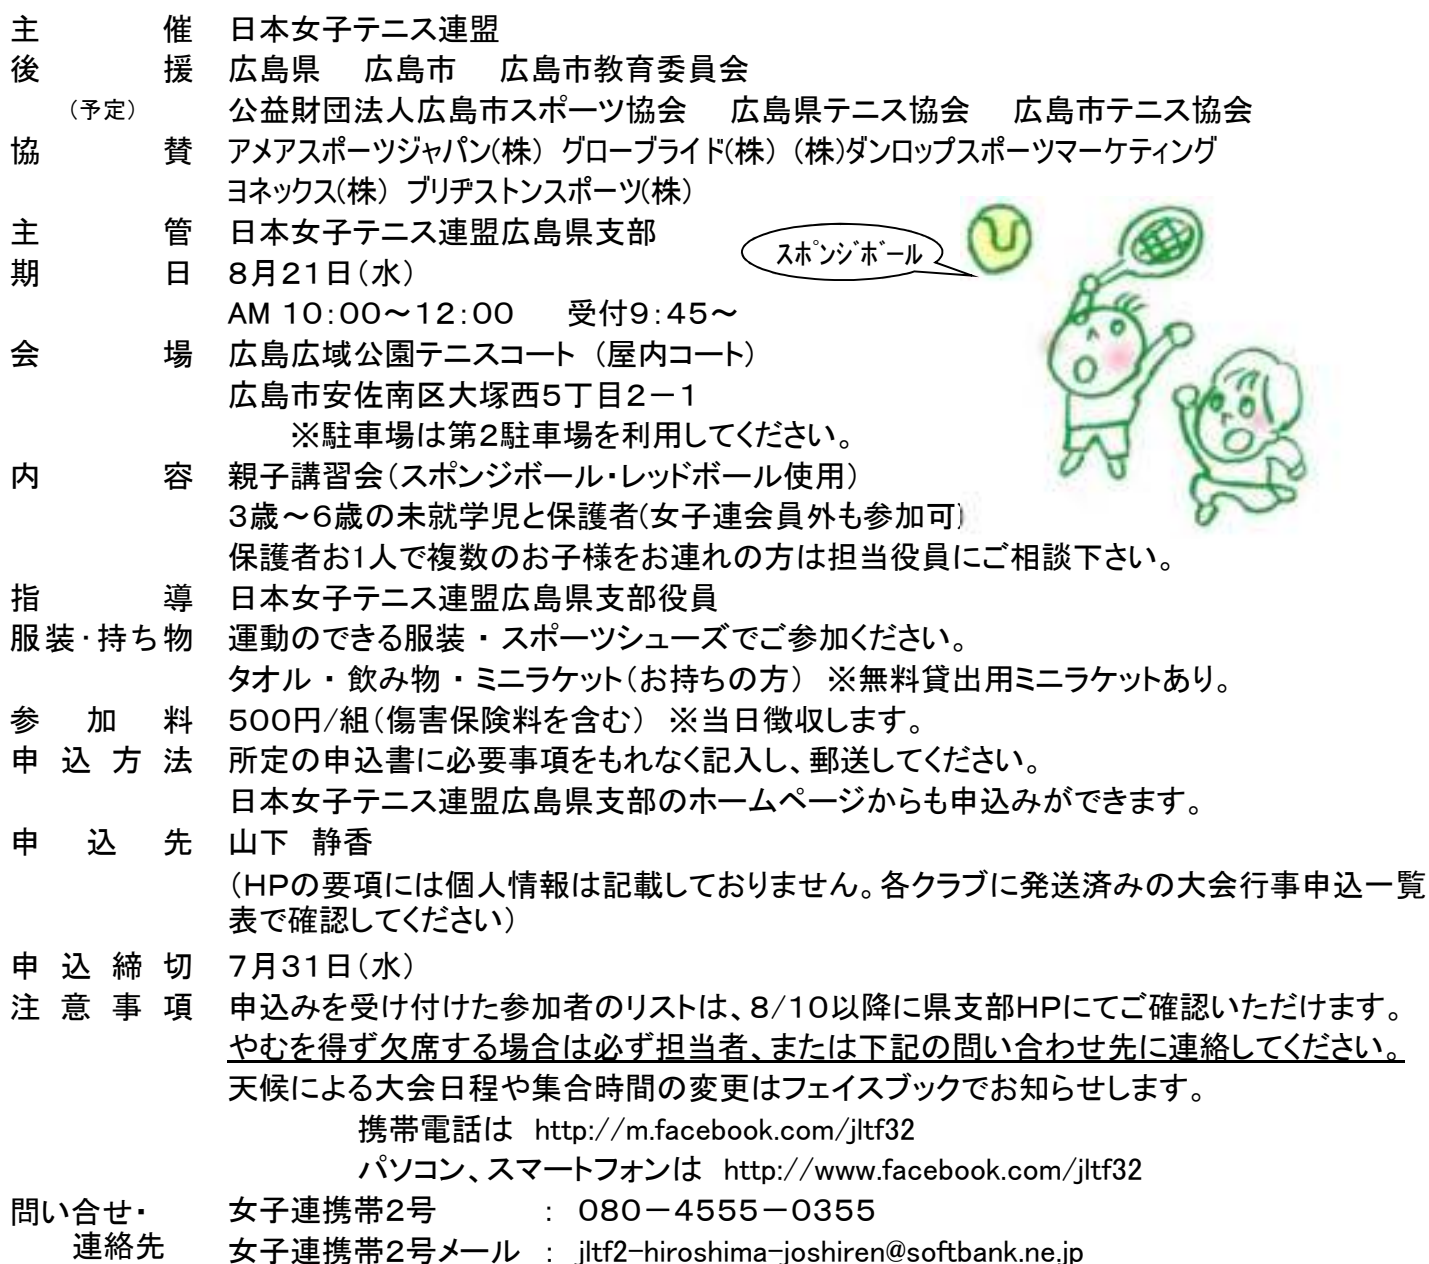 主催 日本女子テニス連盟
後援 広島県 広島市 広島市教育委員会
(予定) 公益財団法人広島市スポーツ協会 広島県テニス協会 広島市テニス協会
協賛 アメアスポーツジャパン(株) グローブライド(株) (株)ダンロップスポーツマーケティング
ヨネックス(株) ブリヂストンスポーツ(株)
主管 日本女子テニス連盟広島県支部
スポンジボール
期日 8月21日(水)
AM 10:00～12:00 受付9:45～
会場 広島広域公園テニスコート (屋内コート)
広島市安佐南区大塚西5丁目2－1
※駐車場は第2駐車場を利用してください。
内容 親子講習会(スポンジボール・レッドボール使用)
3歳～6歳の未就学児と保護者(女子連会員外も参加可)
保護者お1人で複数のお子様をお連れの方は担当役員にご相談下さい。
指導 日本女子テニス連盟広島県支部役員
服装・持ち物 運動のできる服装 ・ スポーツシューズでご参加ください。
タオル ・ 飲み物 ・ ミニラケット(お持ちの方) ※無料貸出用ミニラケットあり。
参加料 500円/組(傷害保険料を含む) ※当日徴収します。
申込方法 所定の申込書に必要事項をもれなく記入し、郵送してください。
日本女子テニス連盟広島県支部のホームページからも申込みができます。
申込先 山下 静香
(HPの要項には個人情報は記載しておりません。各クラブに発送済みの大会行事申込一覧
表で確認してください)
申込締切 7月31日(水)
注意事項 申込みを受け付けた参加者のリストは、8/10以降に県支部HPにてご確認いただけます。
やむを得ず欠席する場合は必ず担当者、または下記の問い合わせ先に連絡してください。
天候による大会日程や集合時間の変更はフェイスブックでお知らせします。
携帯電話は http://m.facebook.com/jltf32
パソコン、スマートフォンは http://www.facebook.com/jltf32
問い合せ・ 女子連携帯2号 : 080－4555－0355
連絡先 女子連携帯2号メール : jltf2-hiroshima-joshiren@softbank.ne.jp